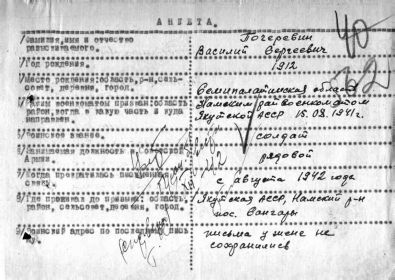 АНКЕТА.
Фамилия, имя и отчество
разыскиваемого.
Почеревин
Василий Сергеевич
40
Год рождения.
1912
Место рождения: область, р-н, сель-
совет, деревня, город.
Семипалатинская область
Каким военкоматом призван: область
район, когда в какую часть и куда
направлен.
Намским райвоенкоматом
Якутской АССР 15.08.1941г.
Воинское звание.
солдат
Занимаемая должность в
Армии.
рядовой
Когда прекратилась письменная
связь.
с августа 1942 года
Где проживал до призыва: область,
район, сельсовет, деревня, город.
Якутская АССР, Намский р-н
пос. Сангары
Воинский адрес по последнему пись
письма у меня не
сохранились